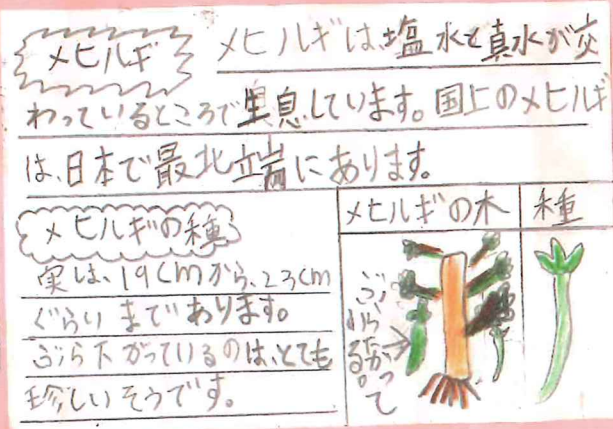 メヒルギ
メヒルギは、塩水と真水が交
わっているところで生息しています。国上のメヒルギ
は、日本で最北端にあります。
メヒルギの種
実は、19cmから、23cm
ぐらいまであります。
ぶら下がっているのは、とても
珍しいそうです。
メヒルギの木
種